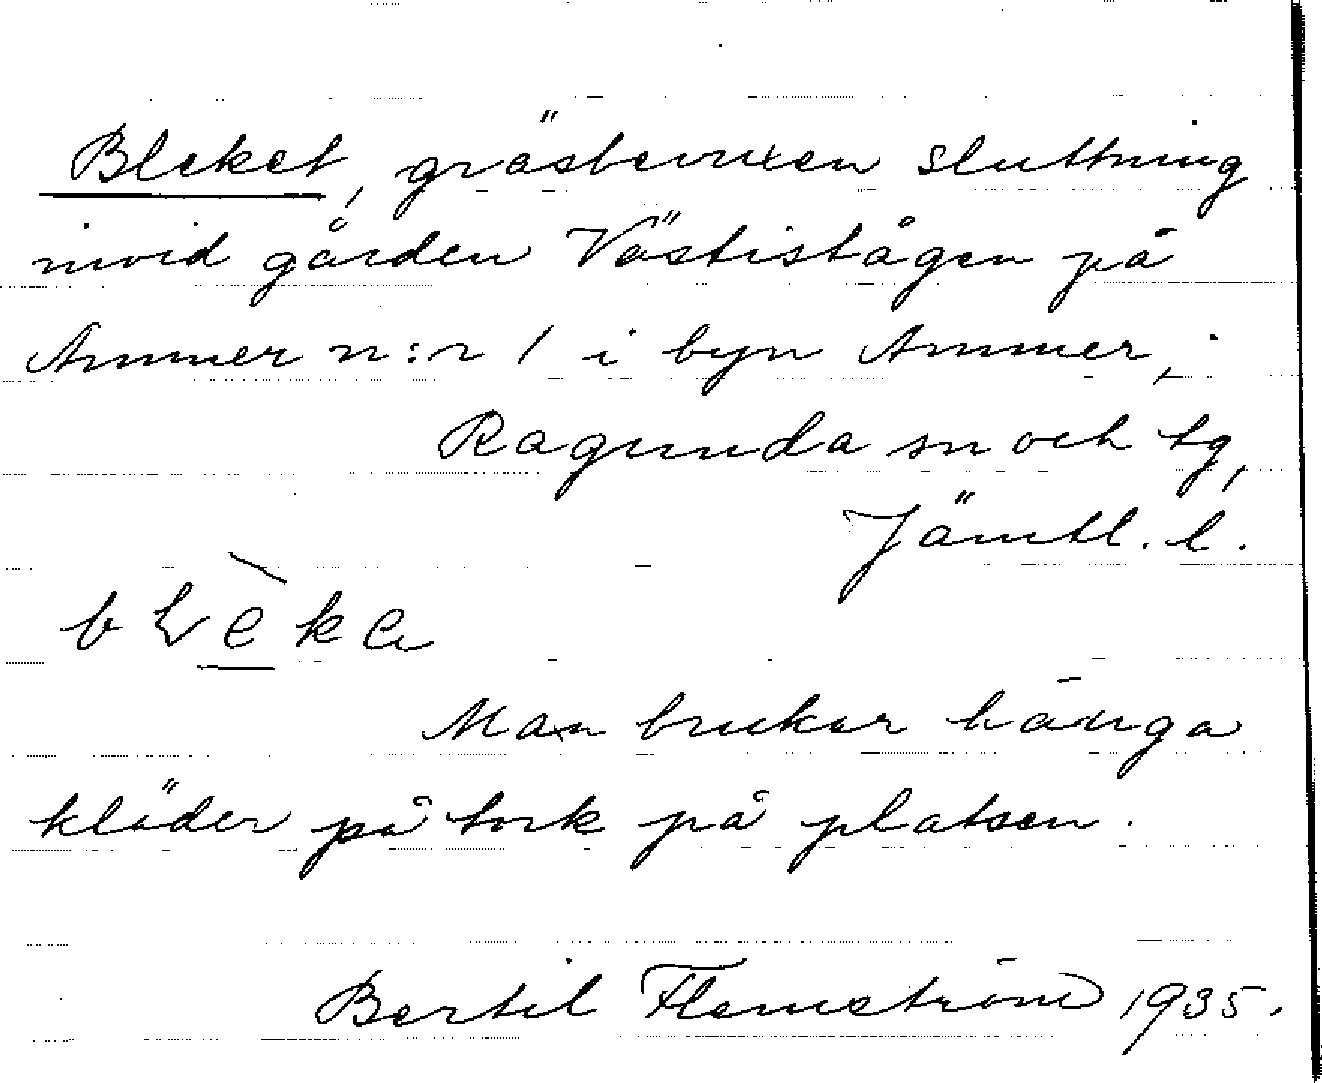 Bleket, gräsbevuxen sluttning
invid gården Västistågen på
Ammer n:r 1 i byn Ammer, i
Ragunda sn och tg,
Jämtl. l.
blèka
Man brukar hänga
kläder på tork på platsen.
Bertil Flemström 1935.